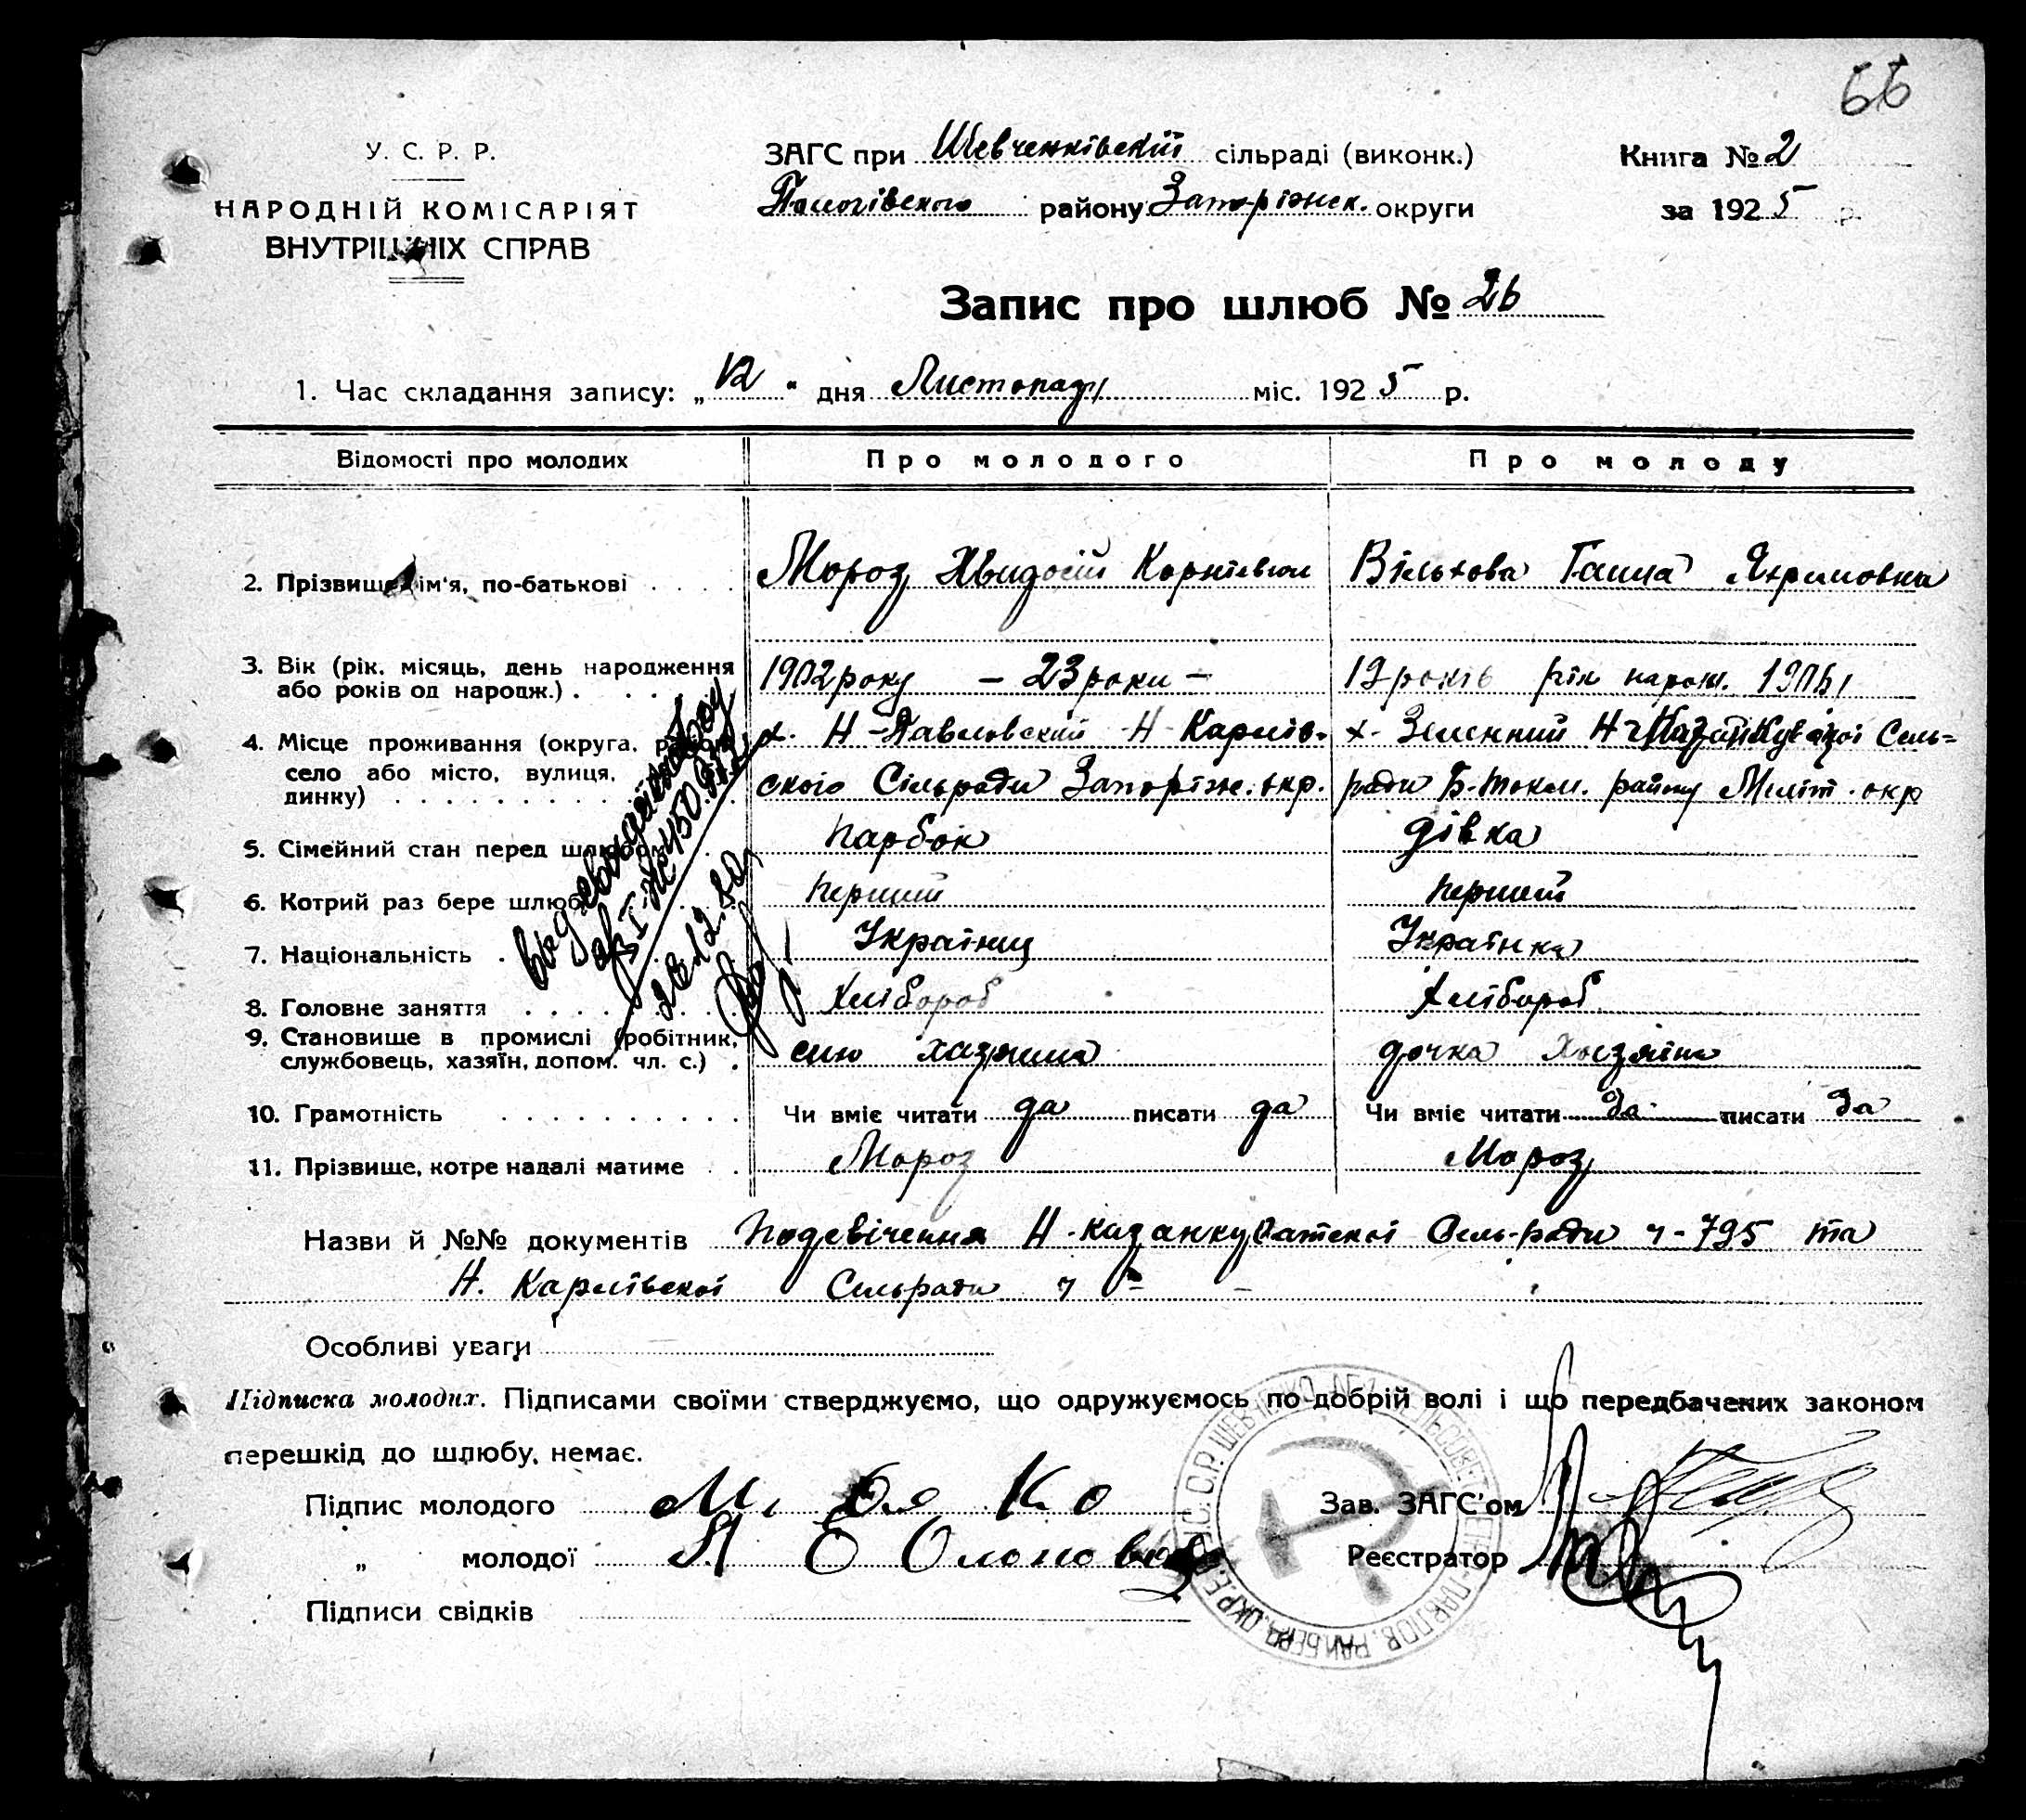 66
У. С. Р. Р.
НАРОДНІЙ КОМІСАРІЯТ
ВНУТРІШНІХ СПРАВ
ЗАГС при Шевченківский сільраді (виконк.)
Пологівского району Запоріжск. округи
Книга № 2
за 1925 р.
Запис про шлюб № 26
1. Час складання запису: „12“ дня Листопаду міс. 1925 р.
Відомості про молодих Про молодого Про молоду
2. Прізвище, ім'я, по-батькові Мороз Хведосій Корнієвич Вільхова Ганна Яхримовна
3. Вік (рік, місяць, день народження
або років од народж.) 1902 року – 23 роки – 19 років рік народж. 1906
4. Місце проживання (округа, район,
село або місто, вулиця,
динку)
х. Н-Павловский Н-Карлів-
ского Сільради Запоріж. окр.
х. Зеленний Н
Сель-
ради Б. Токм. району Меліт. окр
5. Сімейний стан перед шлюбом парбок дівка
6. Котрий раз бере шлюб перший перший
7. Національність Українец Українка
8. Головне заняття Хлібороб Хлібороб
9. Становище в промислі (робітник,
службовець, хазяїн, допом. чл. с.) син хазяина дочка Хозяіна
10. Грамотність Чи вміє читати да писати да Чи вміє читати да писати да
11. Прізвище, котре надалі матиме Мороз Мороз
2612.50
Назви й №№ документів Посвічення Н-казанкуватской Сель-ради ч-795 та
Н. Карлівской Сельради ч
Особливі уваги
Підписка молодих. Підписами своїми стверджуємо, що одружуємось по добрій волі і що передбачених законом
перешкід до шлюбу, немає.
Підпис молодого
„ молодої
Підписи свідків
Зав. ЗАГС'ом
Реєстратор